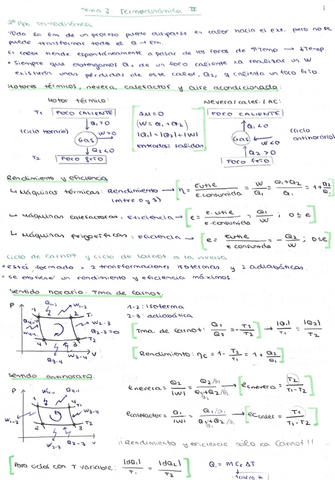 Tema 3 Termodinámica II
2º Ppio Termodinámica
Todo la Em de un proceso puede disiparse en calor hacia el ext. pero no se
puede transformar todo el Q → Em.
El calor tiende espontáneamente a pasar de los focos de ↑Temp → ↓Temp.
• Siempre que obtengamos Q1 de un foco caliente y a realizar un W
existirán unas pérdidas de este calor, Q2, y cediendo a un foco frío.
Motores térmicos, nevera, calefactor y aire acondicionado:
Motor térmico:
Neveras/cales. / AC:
T1 FOCO CALIENTE
Q1>0
(ciclo horario)
Gas
W>0
Q2<0
T2 FOCO FRÍO
ΔU=0
W=Q1+Q2
|Q1|=|Q2|+|W|
entradas salidas
FOCO CALIENTE
Q1<0
Gas
W<0
(ciclo antihorario)
Q2>0
FOCO FRÍO
Rendimiento y eficiencia
↳ Máquinas térmicas: Rendimiento → η = E útil / E consumida = W/Q1 = Q1+Q2 / Q1 = 1+ Q2/Q1
(entre 0 y 1)
↳ Máquinas calefactoras: eficiencia → e = E. útil / E consumida = Q1/W ; 0≤e
↳ Máquinas frigoríficas: eficiencia → e = E útil / E consumida = Q2/W ; 0≤e
Ciclo de Carnot y ciclo de Carnot a la inversa
• está formado = 2 transformaciones isotermas y 2 adiabáticas
• se obtiene un rendimiento y eficiencia máximos
Sentido horario: Tma de Carnot
1-2: isoterma
2-3: adiabática
Tma de Carnot: Q1/Q2 = - T1/T2 → |Q1|/T1 = |Q2|/T2
Rendimiento: ηc = 1 - T2/T1 = 1 + Q2/Q1
Sentido antihorario
e nevera: Q2/|W| = → e nevera: T2 / T1-T2
e calefactor = Q1/|W| = → e calef = T1 / T1-T2
¡Rendimiento y eficiencia sólo en Carnot!!
Para ciclos con T variable: |dQ1|/T1 = |dQ2|/T2
Q = m Ce ΔT